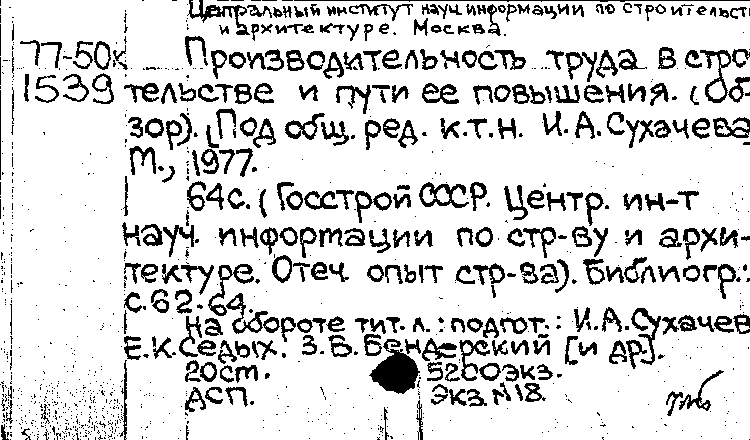 Центральный институт науч. информации по строительст
и архитектуре. Москва.
77-50к Производительность труда в стро
1539 тельстве и пути ее повышения. (Об-
зор). (Под общ. ред. к.т.н. И.А.Сухачева
М., 1977.
64с. (Госстрой СССР. Центр. ин-т
науч. информации по стр-ву и архи-
тектуре. Отеч. опыт стр-ва). Библиогр.:
с.62-64.
На обороте тит. л.: подгот.: И.А.Сухачев
Е.К.Седых. З.Б.Бендерский [и др.].
20см. 5200экз.
ДСП. Экз. №18.